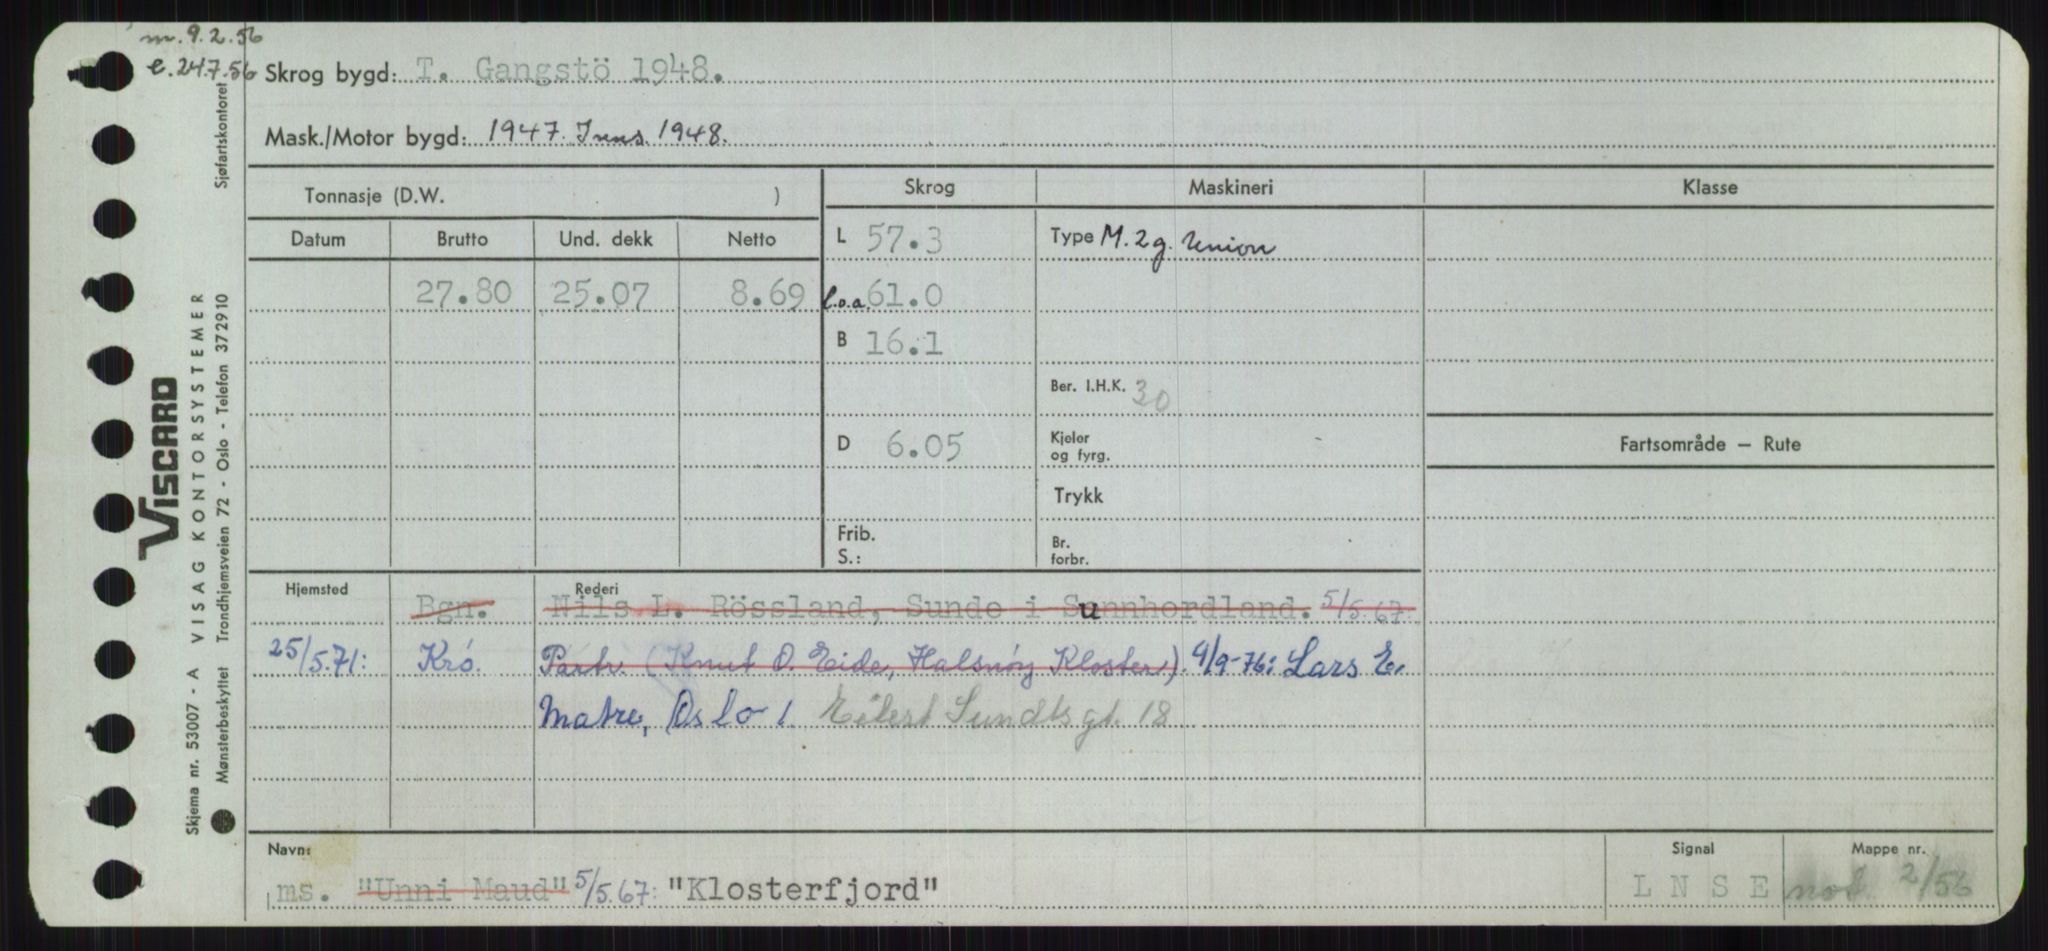 m. 9.2.56
e. 24.7.56
Skrog bygd: T. Gangstö 1948.
Mask./Motor bygd: 1947. Inns. 1948.
Tonnasje (D.W. )
Datum Brutto Und. dekk Netto
27.80 25.07 8.69
Skrog
L 57.3
l.o.a. 61.0
B 16.1
D 6.05
Frib.
S.:
Maskineri
Type M. 2 g. Union
Ber. I.H.K. 30
Kjeler
og fyrg.
Trykk
Br.
forbr.
Klasse
Fartsområde — Rute
Hjemsted Rederi
Bgn. Nils L. Rössland, Sunde i Sunnhordland. 5/5.67.
25/5.71: Krö. Partr. (Knut O. Eide, Halsnøy Kloster). 9/9-76: Lars E.
Matre, Oslo 1. Eilert Sundts gt. 18
Navn: Signal Mappe nr.
ms. "Unni Maud" 5/5.67: "Klosterfjord" L N S E not. 2/56
Viscard
Skjema nr. 53007 - A VISAG KONTORSYSTEMER
Mønsterbeskyttet Trondhjemsveien 72 - Oslo - Telefon 372910 Sjøfartskontoret